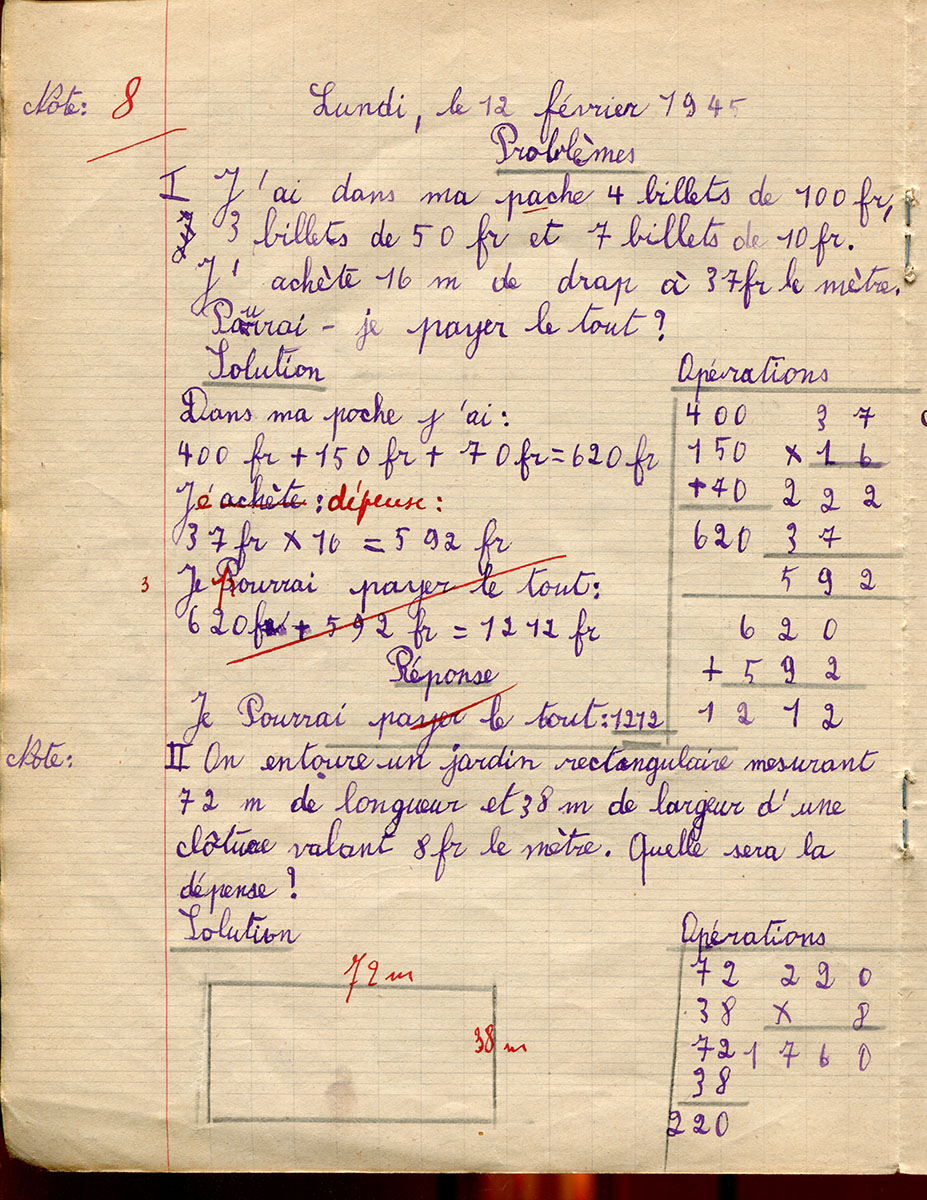 Note: 8
Lundi, le 12 février 1945
Problèmes
I J'ai dans ma pache 4 billets de 100 fr,
3 billets de 50 fr et 7 billets de 10 fr.
J' achète 16 m de drap à 37 fr le mètre.
Pourrai - je payer le tout ?
Solution
Dans ma poche j'ai :
400 fr + 150 fr + 70 fr = 620 fr
J'achète : dépense :
37 fr × 16 = 592 fr
3 Je Pourrai payer le tout :
620 fr + 592 fr = 1212 fr
Réponse
Je Pourrai payer le tout : 1212
Opérations
400 37
150 × 16
+70 222
620 37
592
620
+ 592
1212
Note:
II On entoure un jardin rectangulaire mesurant
72 m de longueur et 38 m de largeur d'une
clôture valant 8 fr le mètre. Quelle sera la
dépense ?
Solution
72 m
38 m
Opérations
72 220
38 × 8
72 1760
38
220